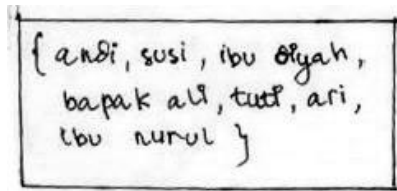 { andi, susi, ibu diyah,
bapak ali, tuti, ari,
ibu nurul }